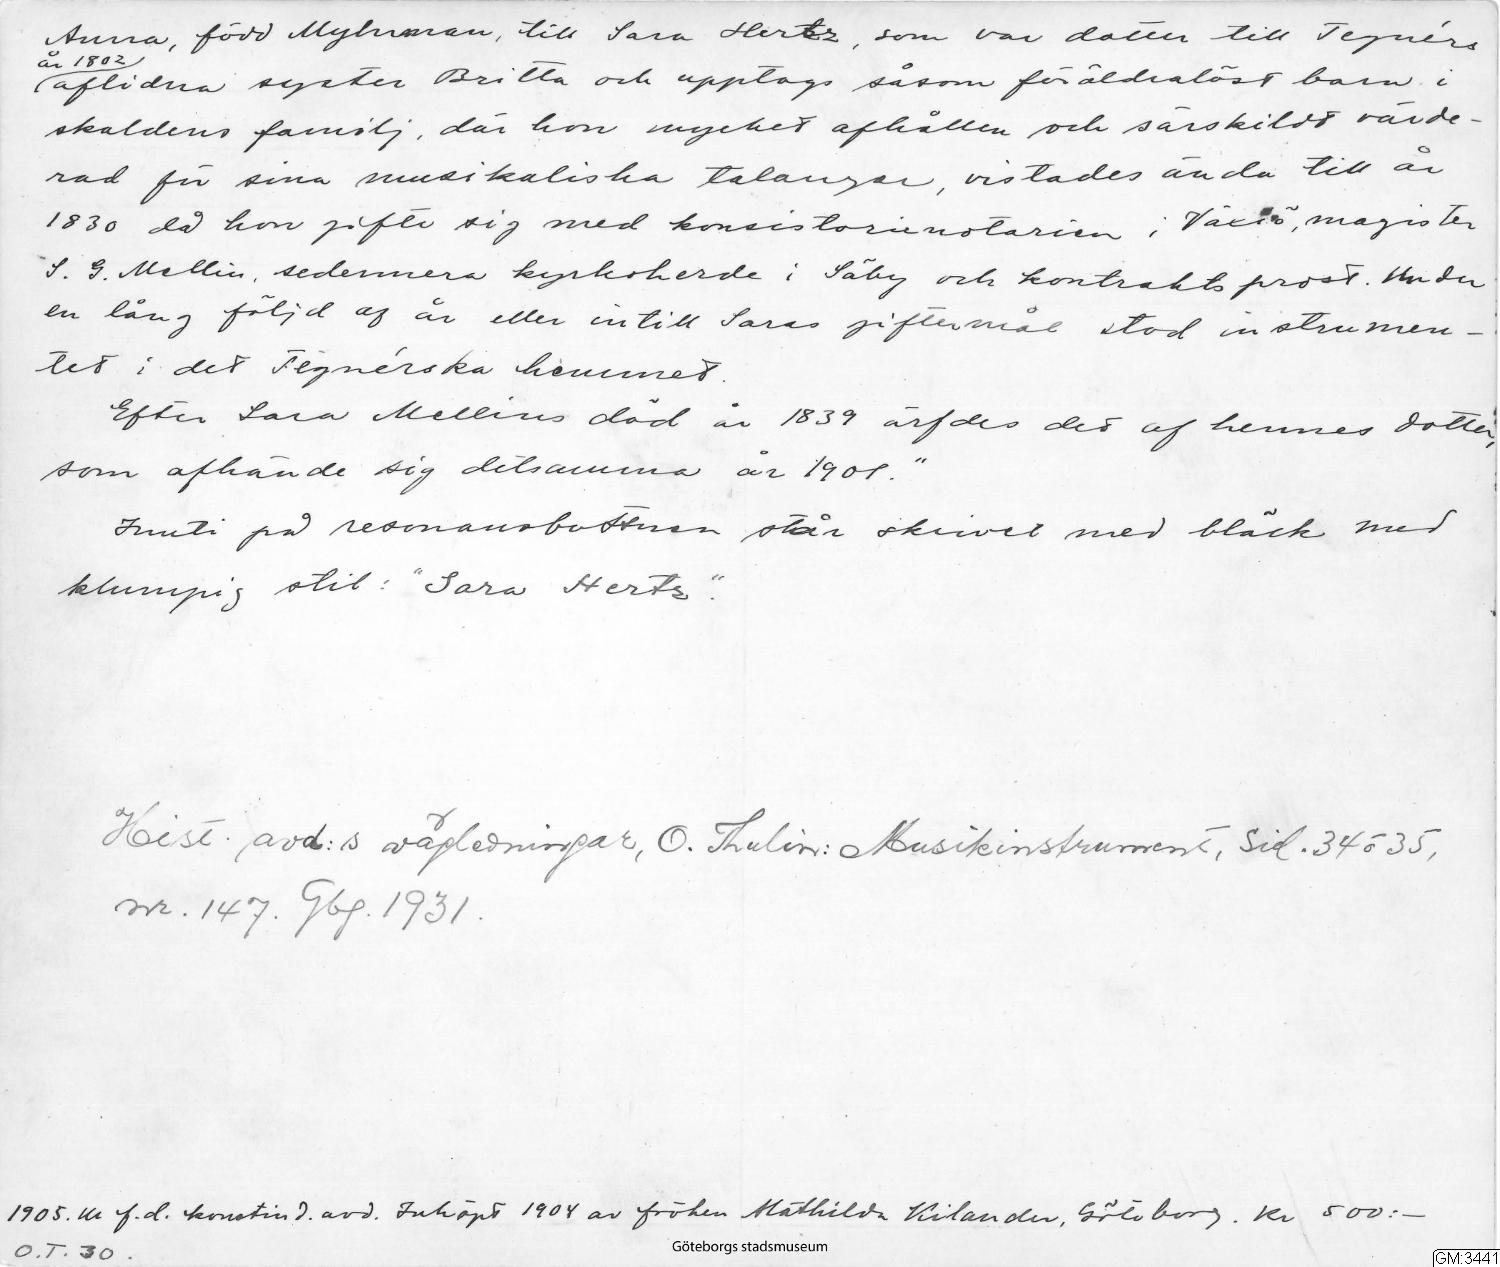 Anna, född Myhrman, till Sara Hertz, som var dotter till Tegnérs
år 1802
aflidna syster Britta och upptogs såsom föräldralöst barn i
skaldens familj, där hon mycket afhållen och särskildt värde-
rad för sina musikaliska talanger, vistades ända till år
1830 då hon gifte sig med konsistorienotarien i Växiö, magister
S. G. Mellin, sedermera kyrkoherde i Säby och kontraktsprost. Under
en lång följd af år eller intill Saras giftermål stod instrumen-
tet i det Tegnérska hemmet.
Efter Sara Mellins död år 1839 ärfdes det af hennes dotter,
som afhände sig detsamma år 1901."
Inuti på resonansbottnen står skrivet med bläck med
klumpig stil: "Sara Hertz".
Hist. avd:s vägledningar, O. Thulin: Musikinstrument, sid. 34 o 35,
nr. 147. Gbg. 1931.
1905. Ur f.d. konstind. avd. Inköpt 1904 av fröken Mathilda Kilander, Göteborg. Kr 500:-
O.T. 30.
Göteborgs stadsmuseum
GM:3441